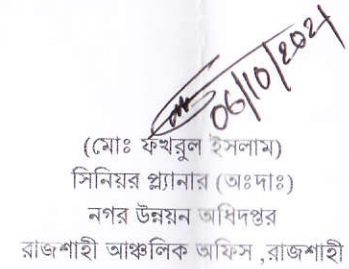 06/10/2021
(মোঃ ফখরুল ইসলাম)
সিনিয়র প্ল্যানার (অঃদাঃ)
নগর উন্নয়ন অধিদপ্তর
রাজশাহী আঞ্চলিক অফিস ,রাজশাহী